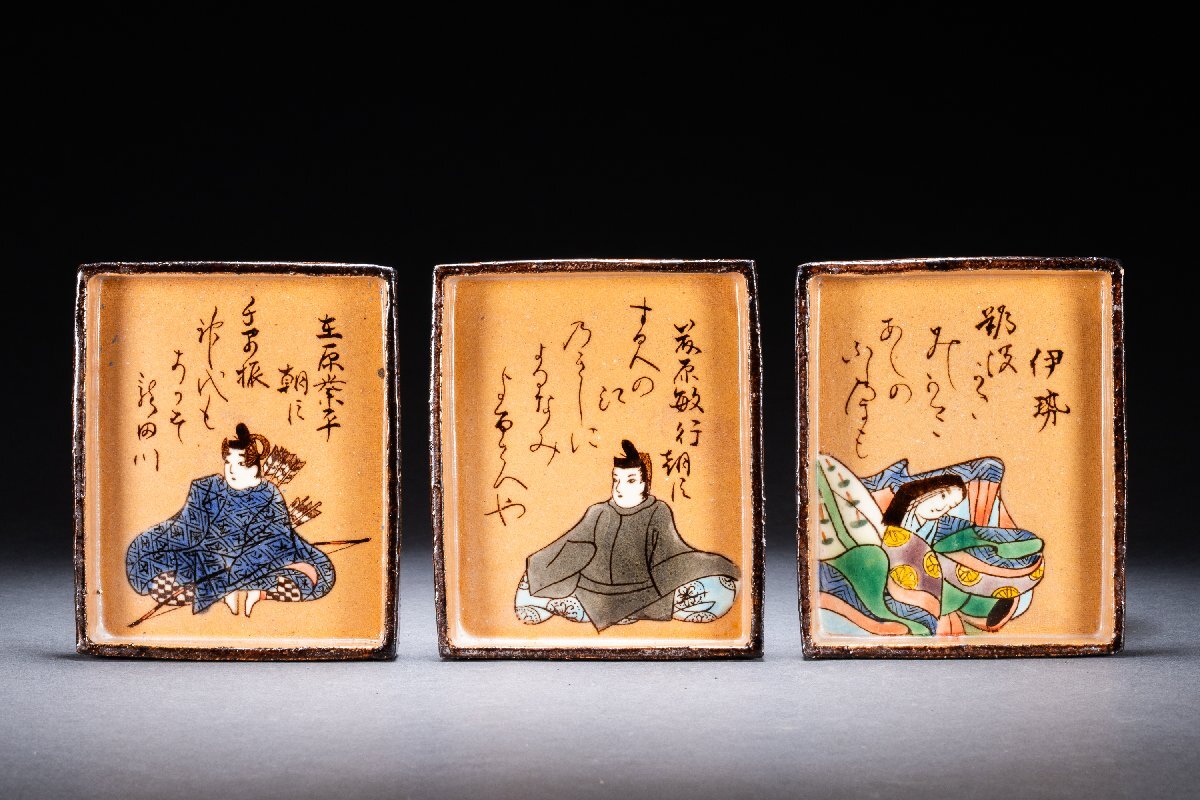 在原業平
朝臣
千早振
神代も
きかす
龍田川
藤原敏行朝臣
すみの
江
乃きしに
よるなみ
よるさへや
伊勢
難波かた
みしかき
あしの
ふしのまも